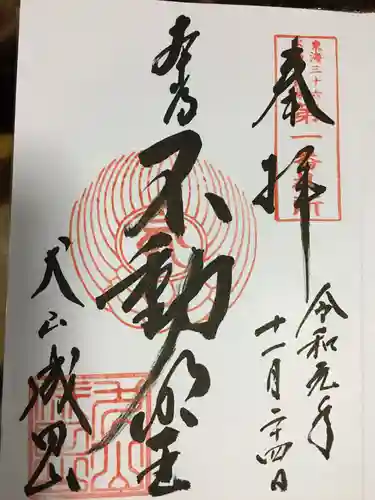 奉拝
東海三十六
第一番
令和元年
十一月二十四日
本尊
不動明王
犬山成田山